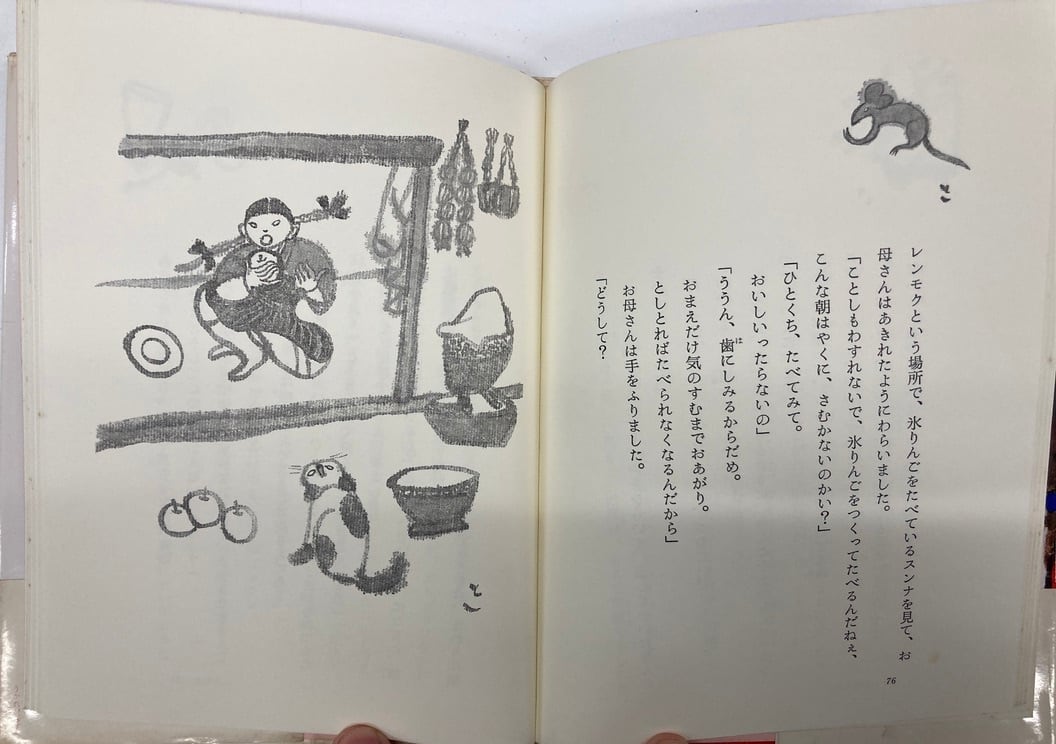 レンモクという場所で、氷りんごをたべているスンナを見て、お
母さんはあきれたようにわらいました。
「ことしもわすれないで、氷りんごをつくってたべるんだねぇ、
こんな朝はやくに、さむかないのかい？」
「ひとくち、たべてみて。
おいしいったらないの」
「ううん、歯にしみるからだめ。
おまえだけ気のすむまでおあがり。
としとればたべられなくなるんだから」
お母さんは手をふりました。
「どうして？
76